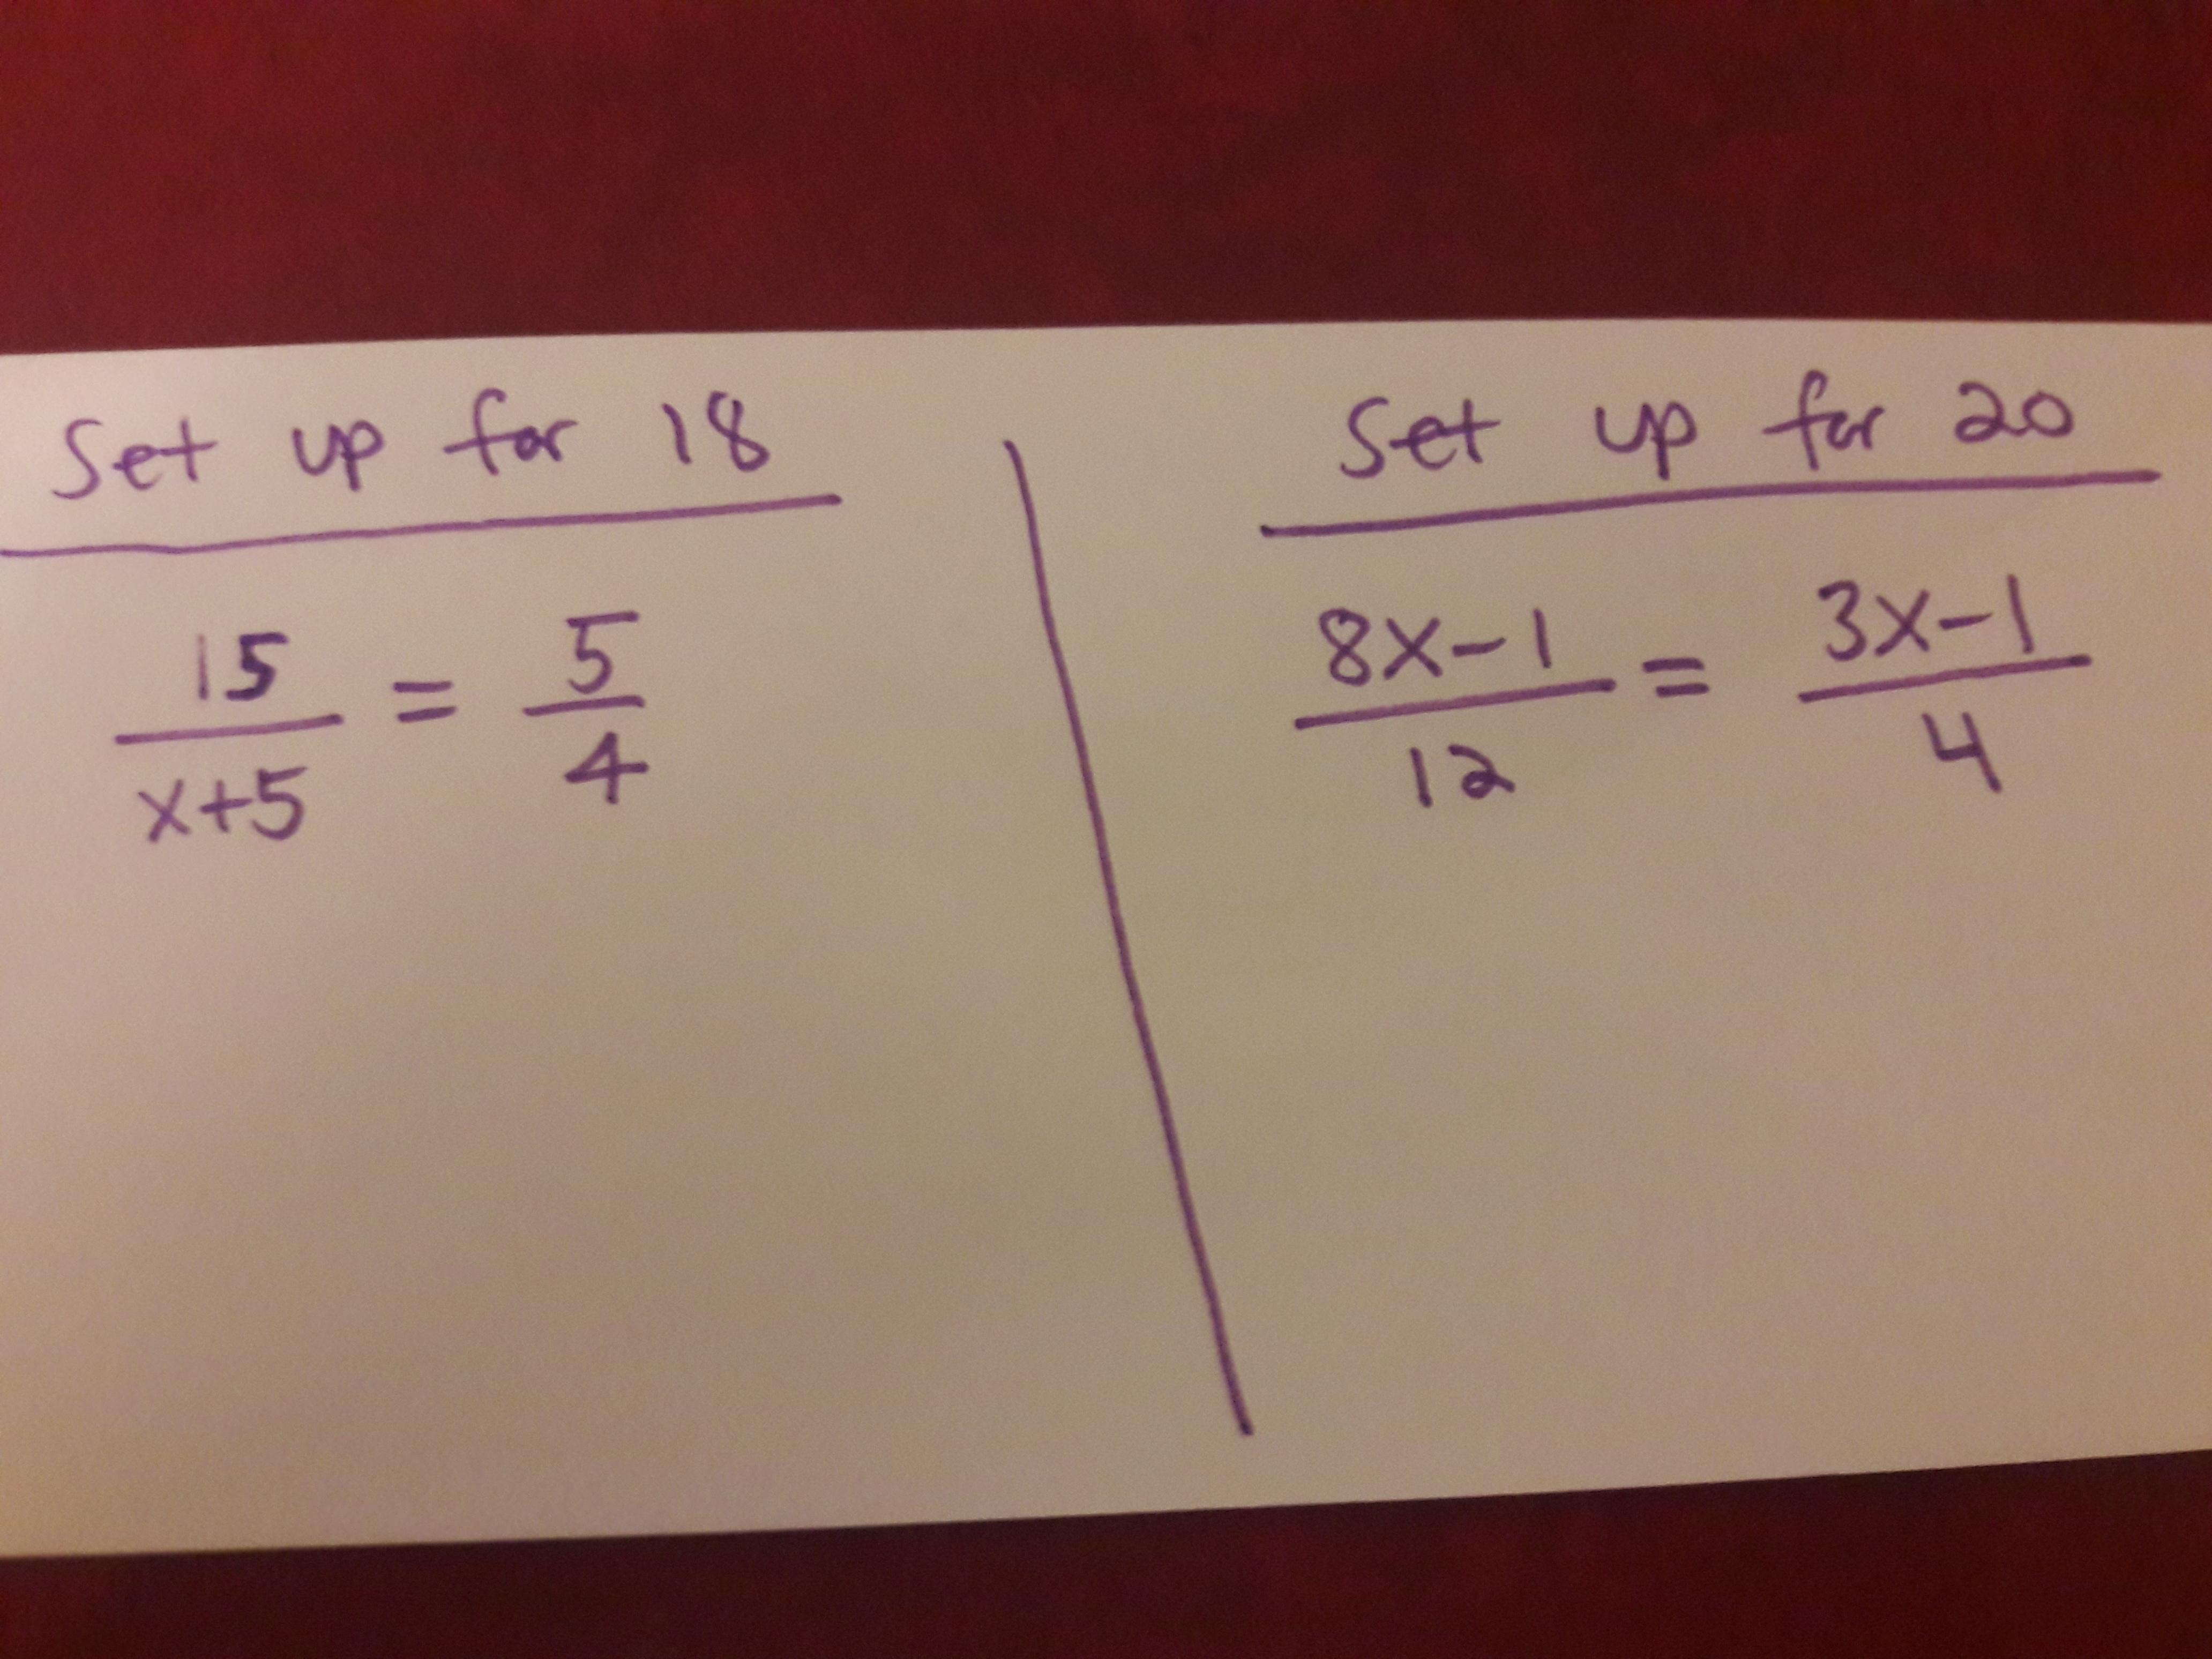 Set up for 18
15/x+5 = 5/4
Set up for 20
8x-1/12 = 3x-1/4